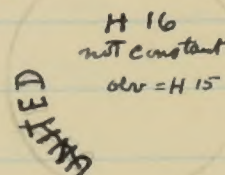 H 16
not Constant
obv = H 15